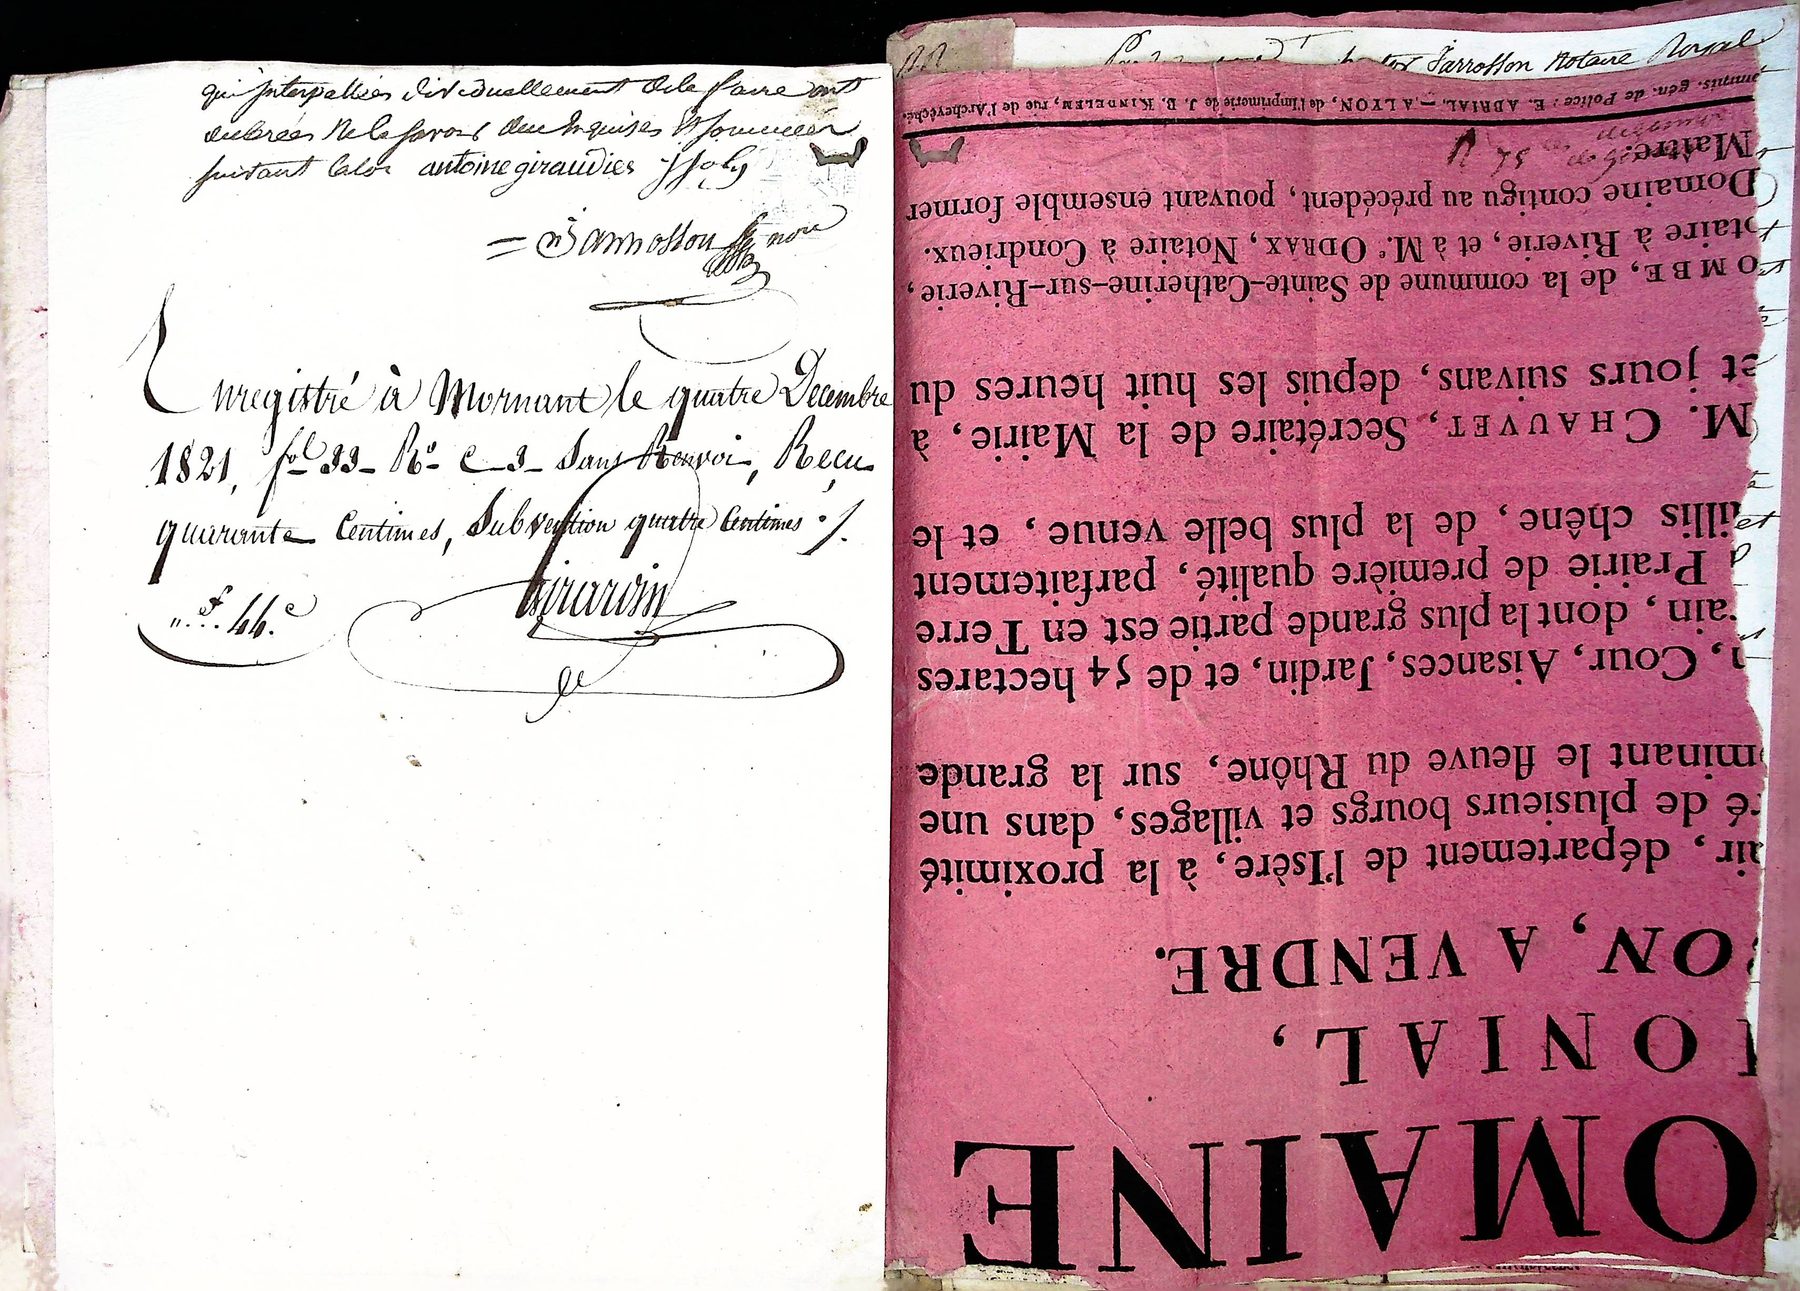 qui interpellées dividuellement de le faire ont
declarées ne le savoir deux Requises et sommees
suivant la loi antoine giraudies J Joly
= Jarrosson nore
Enregistré à Mornant le quatre Decembre
1821, fol 33 Ro c 3 Sans Renvoi, Reçu
quarante Centimes, Subvention quatre Centimes ./.
".f. 44.c
Girardin
Jarrosson Notaire Royal
OMAINE
ONIAL,
ON, A VENDRE.
air, département de l'Isère, à la proximité
ré de plusieurs bourgs et villages, dans une
minant le fleuve du Rhône, sur la grande
n, Cour, Aisances, Jardin, et de 54 hectares
rain, dont la plus grande partie est en Terre
Prairie de première qualité, parfaitement
illis chêne, de la plus belle venue, et le
M. CHAUVET, Secrétaire de la Mairie, à
et jours suivans, depuis les huit heures du
OMBE, de la commune de Sainte-Catherine-sur-Riverie,
otaire à Riverie, et à M.e ODRAX, Notaire à Condrieux.
Domaine contigu au précédent, pouvant ensemble former
Maître.
ommis. gén. de Police : E. ADRIAL. — A LYON, de l'Imprimerie de J. B. KINDELEM, rue de l'Archevêché.